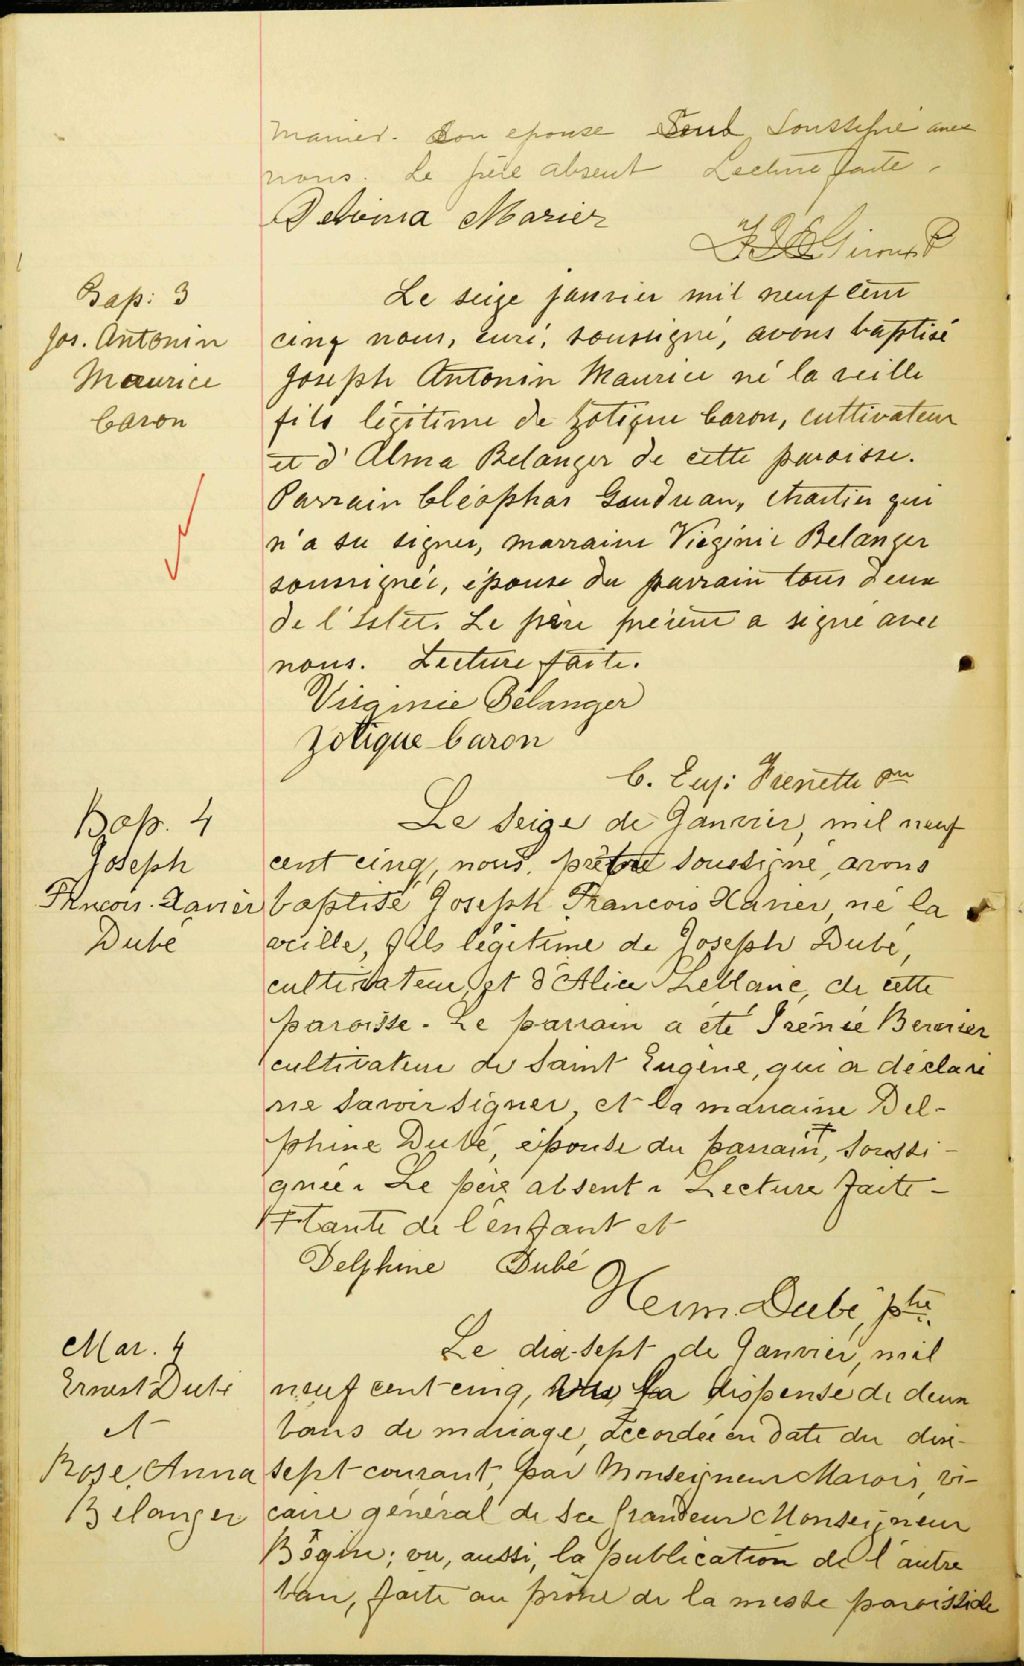 Marier. Son epouse Seul Soussigné avec
nous. Le père absent Lecture faite.
Delvina Marier
Giroux P
Bap: 3
Jos. Antonin
Maurice
Caron
Le seize janvier mil neuf cent
cinq nous, curé, soussigné, avons baptisé
Joseph Antonin Maurice né la veille
fils légitime de Zotique Caron, cultivateur
et d'Alma Belanger de cette paroisse.
Parrain Cléophas Gaudreau, charretier qui
n'a su signer, marraine Virginie Belanger
soussignée, épouse du parrain tous deux
de l'Islet. Le père présent a signé avec
nous. Lecture faite.
Virginie Bélanger
Zotique Caron
C. Eug: Frenette ptre
Bap. 4
Joseph
Francois-Xavier
Dubé
Le seize de Janvier, mil neuf
cent cinq, nous, prêtre soussigné, avons
baptisé Joseph Francois Xavier, né la
veille, fils légitime de Joseph Dubé,
cultivateur, et d'Alice Leblanc, de cette
paroisse. Le parrain a été Irénée Bernier
cultivateur de Saint Eugène, qui a déclaré
ne savoir signer, et la marraine Del-
phine Dubé, épouse du parrain, ‡ soussi-
gnée. Le père absent. Lecture faite-
‡ tante de l'enfant et
Delphine Dubé
Herm. Dubé, ptre.
Mar. 4
Ernest Dubé
et
Rose Anna
Bélanger
Le dix-sept de Janvier, mil
neuf cent cinq, Vu la dispense de deux
bans de mariage, accordée en date du dix-
sept courant, par Monseigneur Marois, vi-
caire général de Sa Grandeur Monseigneur
Bégin; vu, aussi, la publication de l'autre
ban, faite au prône de la messe paroissiale